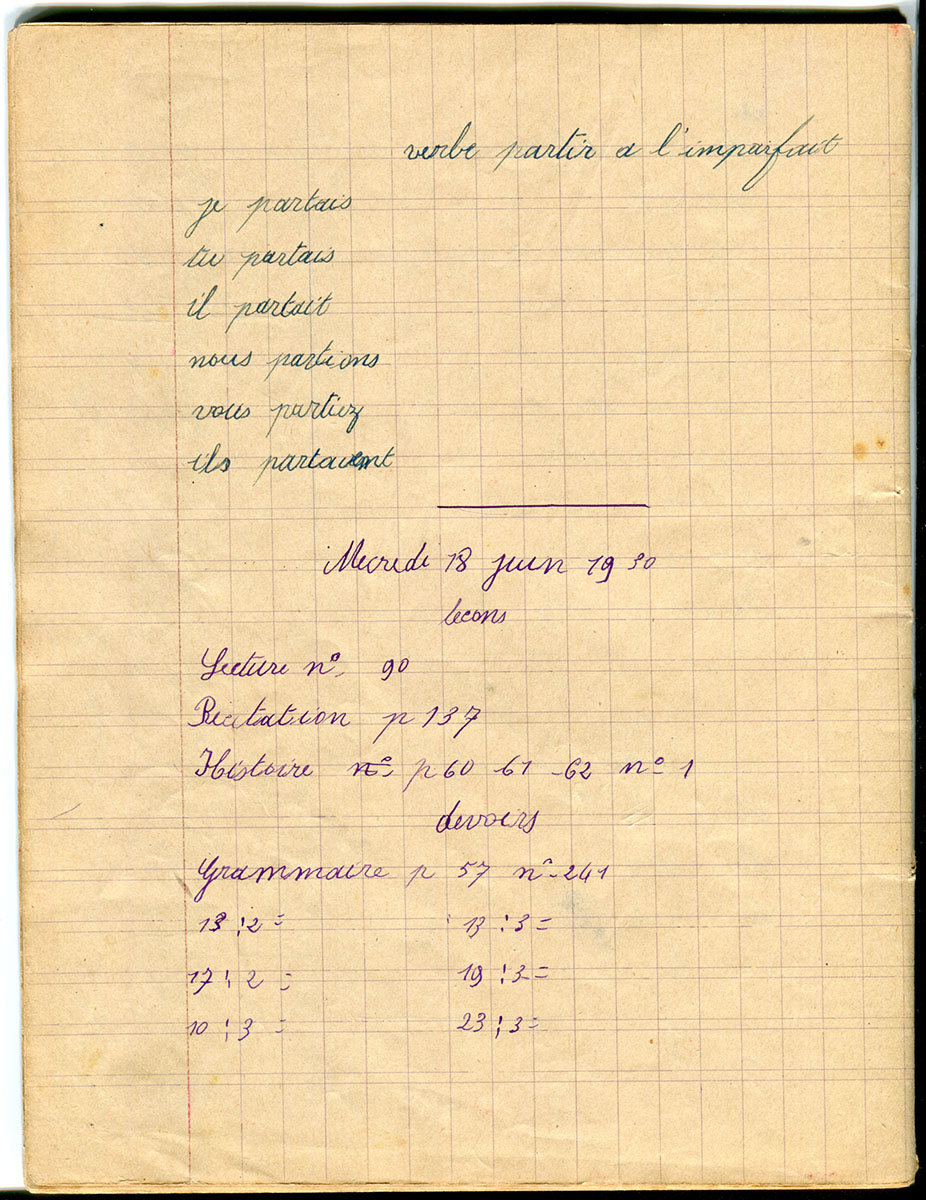 verbe partir a l'imparfait
je partais
tu partais
il partait
nous partions
vous partiez
ils partaient
Mecredi 18 juin 1930
lecons
Lecture n° 90
Recitation p 137
Histoire n° p 60 - 61 - 62 n° 1
devoirs
Grammaire p 57 n° 241
13 : 2 = 13 : 3 =
17 : 2 = 19 : 3 =
10 : 3 = 23 : 3 =